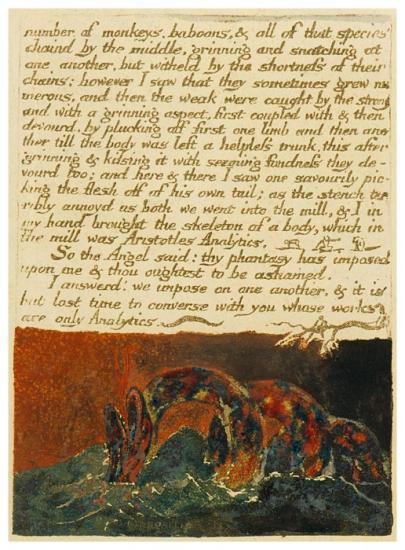 number of monkeys, baboons, & all of that species
chaind by the middle, grinning and snatching at
one another, but witheld by the shortness of their
chains: however I saw that they sometimes grew nu
merous, and then the weak were caught by the strong
and with a grinning aspect, first coupled with & then
devourd, by plucking off first one limb and then ano
ther till the body was left a helpless trunk. this after
grinning & kissing it with seeming fondness they de-
vourd too; and here & there I saw one savourily pic-
king the flesh off of his own tail; as the stench ter
ribly annoyd us both we went into the mill, & I in
my hand brought the skeleton of a body, which in
the mill was Aristotles Analytics.
So the Angel said: thy phantasy has imposed
upon me & thou oughtest to be ashamed.
I answerd: we impose on one another, & it is
but lost time to converse with you whose works
are only Analytics